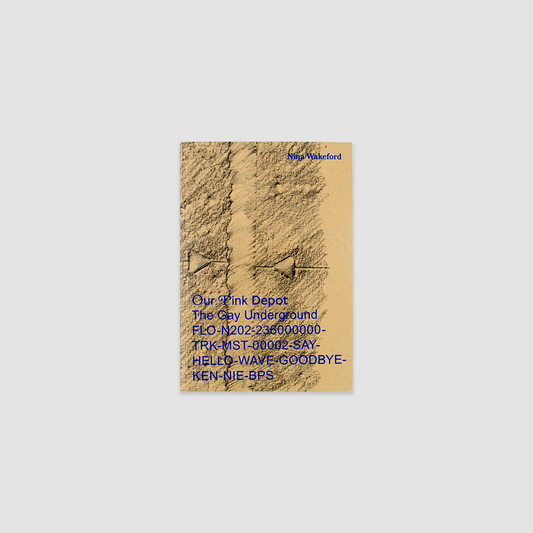 Nina Wakeford
Our Pink Depot
The Gay Underground
FLO-N202-236000000-
TRK-MST-00002-SAY-
HELLO-WAVE-GOODBYE-
KEN-NIE-BPS